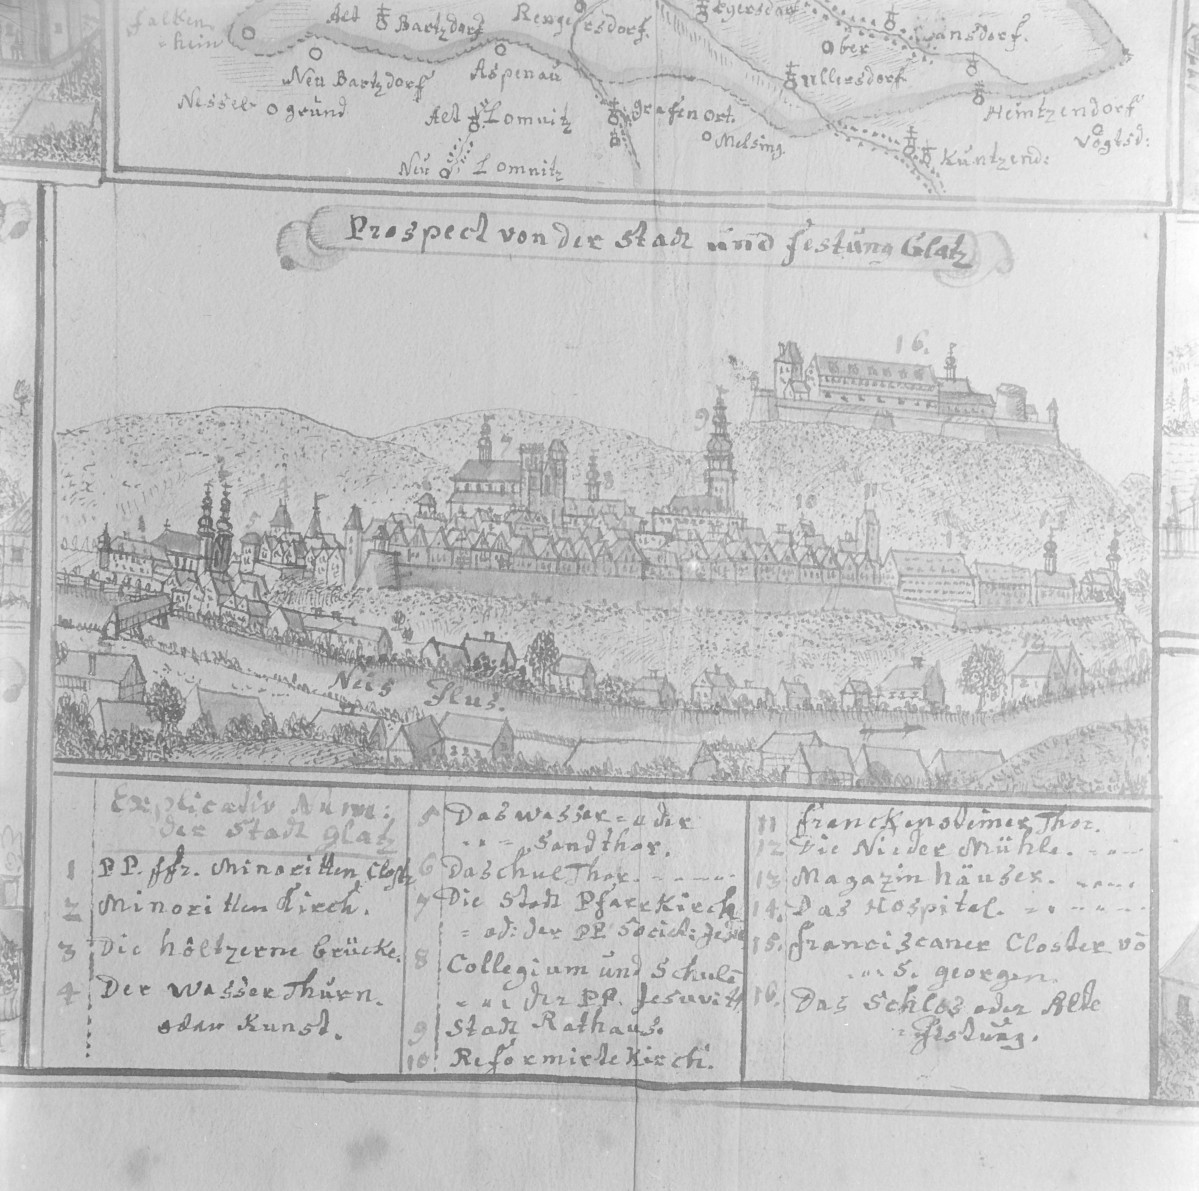 falken
= hein
Alt Bartzdorf
Rengersdorf.
Ober
Hansdorf.
Neu Bartzdorf
Aspenau
Ullersdorf
Nessel=
grund
Alt Lomnitz
Grafenort.
Melsing.
Heintzendorf
Vogtsd:
Neu Lomnitz
Kuntzend:
Prospect von der Stadt und festung Glatz
16.
9
7
8
10
11
5
Neis flus.
Explicatio Num:
der Stadt Glatz
1 PP. ffr. Minoritten Clostr
2 Minoritten Kirch.
3 Die höltzerne brücke.
4 Der Wasser Thurn.
oder Kunst.
5 Das wasser = oder
Sandthor.
6 Das chul Thor.
7 Die Stadt Pfarr Kirch
= od: der PP. Societ: Jesu
8 Collegium und Schulē
der PP. Jesuvitt
9 Stadt Rathaus.
10 Reformirte Kirch.
11 franckensteiner Thor.
12 Die Nieder Mühle.
13 Magazin häuser.
14. Das Hospital.
15. franciscaner Closter vō
S. georgen.
16. Das Schlos oder Alte
festung.